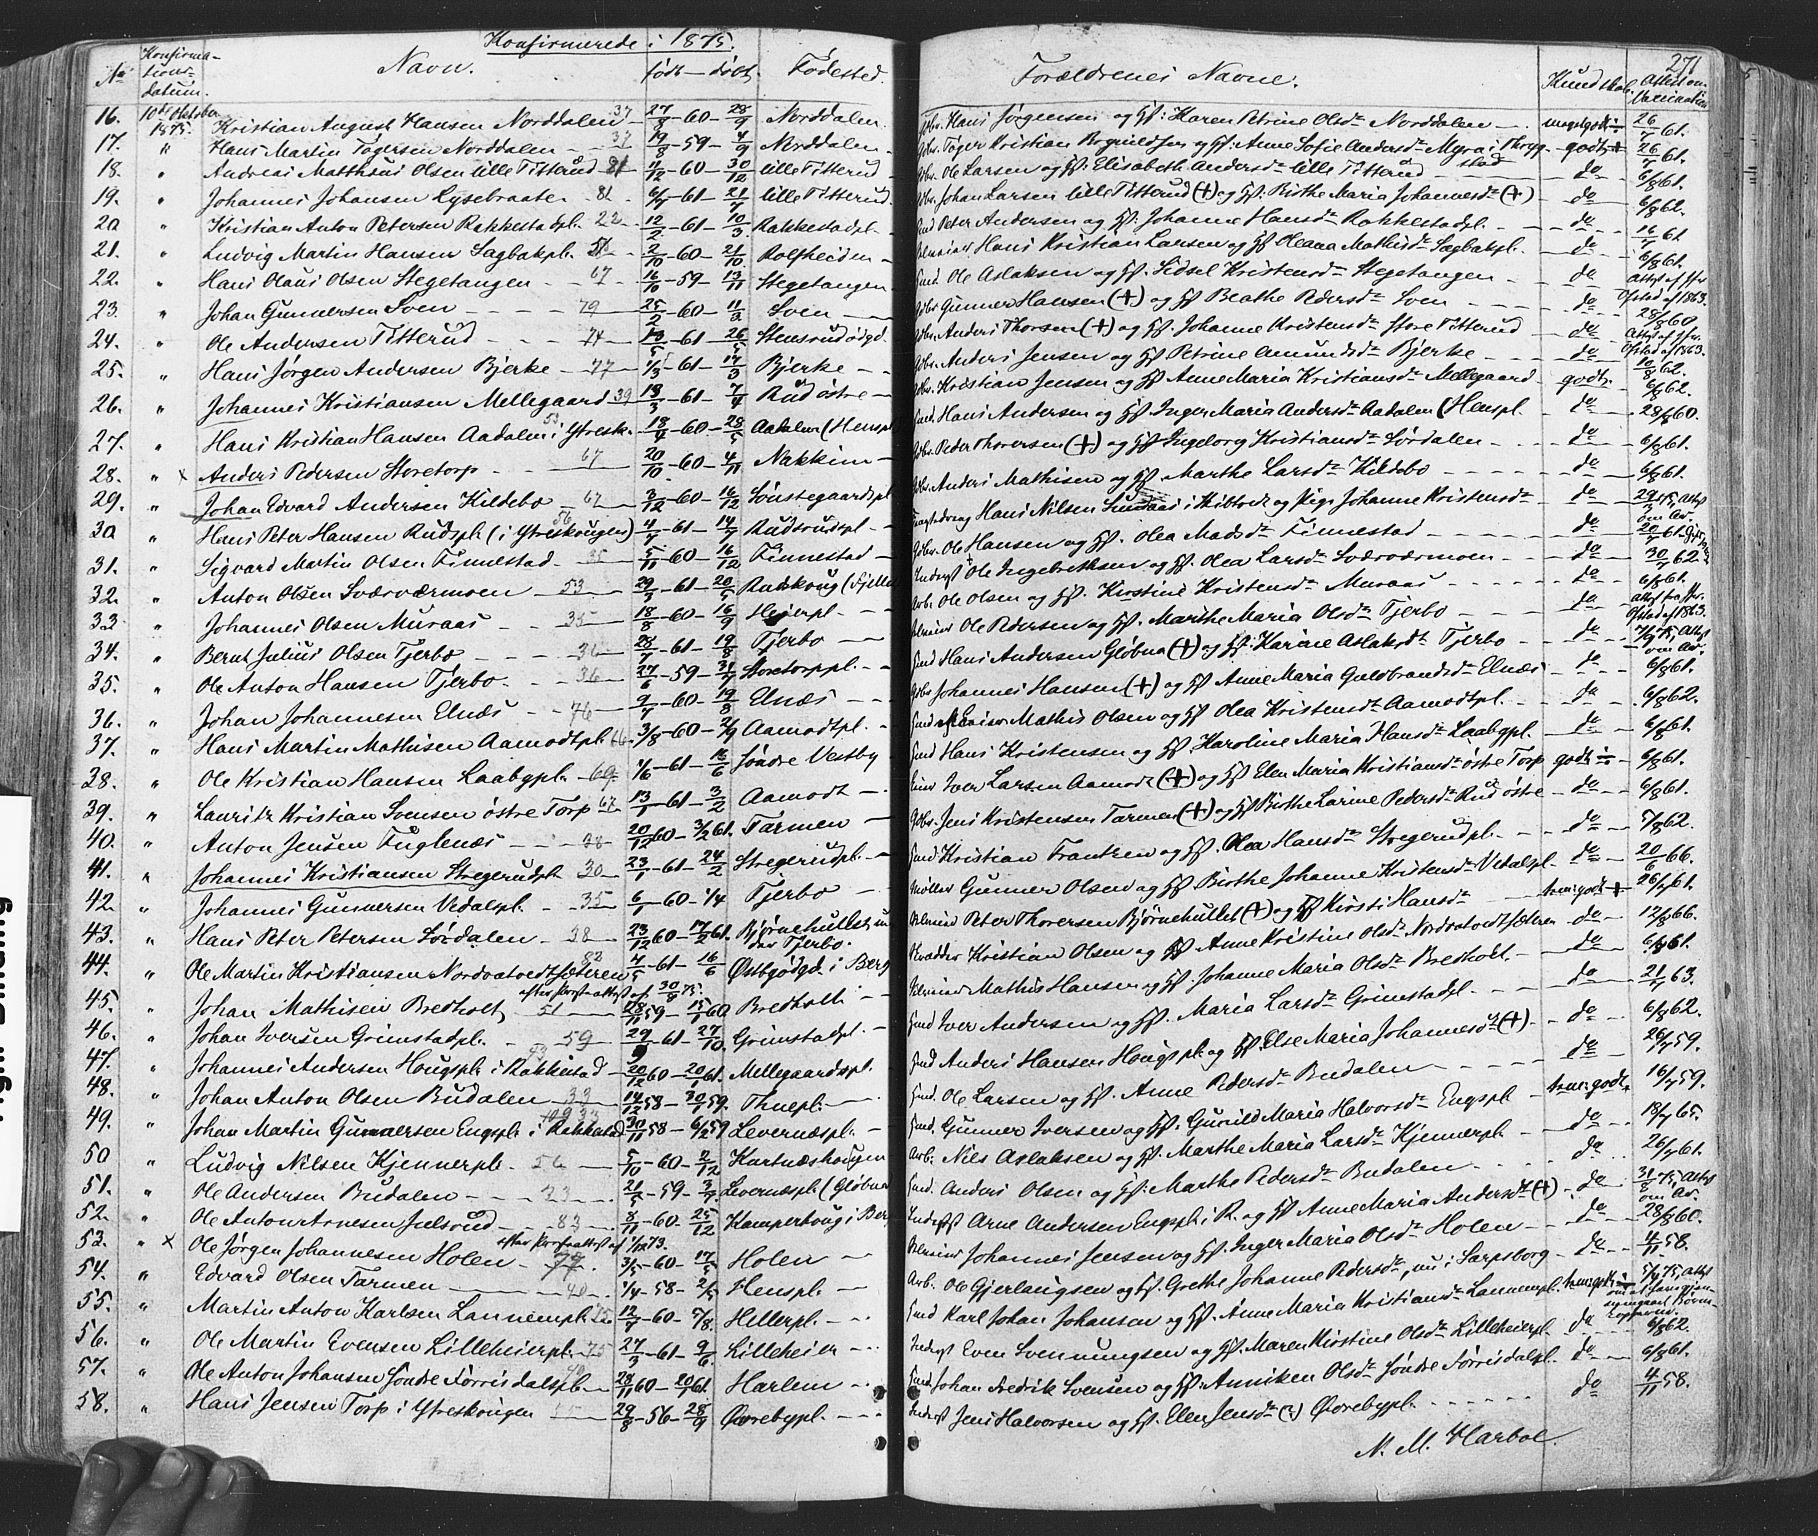 Konfirmerede i 1875.
271
No Konfirmations-datum. Navn. født — døbt. Fødested Forældrenes Navne. Kundskab. Attest om Vaccination
16. 10de Oktober 1875. Kristian August Hansen Norddalen 37 27/8 - 60 - 28/9 Norddalen Gbr. Hans Jørgensen og Hf: Karen Petrine Olsdr Norddalen - meget godt 26/7 61.
17. " Hans Martin Norddalen - 37 19/7 - 59 - 4/9 Norddalen Gbr. Kristian og Hf: Anne Sofie Andersdr Myra i godt 26/7 61.
18. " Andreas Matthæus Olsen lille Titterud 81 11/12 - 60 - 30/12 lille Titterud Gbr. Ole Larsen og Hf: Elisabeth Andersdr lille Titterud do 6/8 61.
19. " Johannes Johansen Lysebraate - 81 6/5 - 61 - 21/7 lille Titterud Gbr. Johan Larsen lille Titterud (+) og Hf: Birthe Maria Johannesdr (+) - do 6/8 62.
20 " Kristian Anton Petersen Rakkestadpl. 22 12/2 - 61 - 10/3 Rakkestadpl. Peter Andersen og Hf: Johanne Hansdr Rakkestadpl. - do 16/7 61
21. " Ludvig Martin Hansen Sagbakpl. 2/10 - 60 - 21/10 Rolfheiden Hans Kristian Larsen og Hf Oleana Mathisdr Sagbakpl. do 6/8 61.
22. " Hans Olaus Olsen Stegetangen - 67 16/10 - 59 - 13/11 Stegetangen Hmd Ole Aslaksen og Hf: Sidsel Kristensdr Stegetangen do Attest af 1863.
23. " Johan Gunnersen Sven - - - 79 25/2 - 60 - 11/3 Sven Gbr. Gunner Hansen (+) og Hf Beathe Pedersdr Sven - - do 28/8 60
24. " Ole Andersen Titterud - - 74 - 61 - 26/5 Stensrudødgd. Gbr. Anders Thorsen (+) og Hf. Johanne Kristensdr Store Titterud do Attest af 1863.
25. " Hans Jørgen Andersen Bjerke - 77 1/3 - 61 - 17/3 Bjerke Gbr. Anders Jensen og Hf Petrine Amundsdr Bjerke - - do 10/8 62.
26. " Johannes Kristiansen Mellegaard 39 13/3 - 61 - 7/4 Rud østre Gbr. Kristian Jensen og Hf Anne Maria Kristiansdr Mellegaard godt 6/8 62.
27. " Hans Kristian Hansen Aadalen i Ytresk. 53 18/4 - 60 - 28/5 Aadalen (Henspl Hmd. Hans Andersen og Hf. Inger Maria Andersdr Aadalen (Henspl. do 28/8 60.
28. " x Anders Pedersen Storetorp 67 20/10 - 60 - 4/11 Nakkim Gbr. Peder Thoresen (+) og Hf Ingeborg Kristiansdr Sørdalen - do 6/8 61.
29. " Johan Edvard Andersen Kildebo 67 3/12 - 60 - 16/12 Sønstegaardspl Gbr. Anders Mathisen og Hf Marthe Larsdr Kildebo - - do 6/8 61.
30 " Hans Peter Hansen Rudspl. (i Ytreskougen) 56 4/7 - 61 - 14/7 Rudsrudspl. Hans Nilsen i og Pige Johanne Kristensdr do 29/3 75, Attest om Av.
31. " Sigvard Martin Olsen Finnestad - 35 5/11 - 60 - 16/12 Finnestad Gbr. Ole Hansen og Hf. Olea Madsdr Finnestad do 20/7 61
32. " Anton Olsen Sværværmoen - 53 29/3 - 61 - 20/5 Rakkoug (Fjelle Inderst Ole Ingebretsen og Hf. Olea Larsdr Sværværmoen do 30/7 62
33. " Johannes Olsen Muraas - 35 18/8 - 60 - 16/9 Heierpl. Arb. Ole Olsen og Hf. Kirstine Kristensdr Muraas do 6/8 61.
34. " Bernt Julius Olsen Tjerbo - 36 28/7 - 61 - 19/8 Tjerbo Ole Pedersen og Hf. Marthe Maria Olsdr Tjerbo do Attest fra af 1863.
35. " Ole Anton Hansen Tjerbo - 36 27/6 - 59 - 31/7 Storetorppl. Hmd Hans Andersen Gløbna (+) og Hf. Karine Aslaksdr Tjerbo - do 7/9 75, Attest om Av.
36. " Johan Johannesen Elnæs - 76 9/7 - 60 - 19/8 Elnæs Gbr Johannes Hansen (+) og Hf Anne Maria Guldbrandsdr Elnæs do 6/8 61.
37. " Hans Martin Mathisen Aamodtpl. 3/8 - 60 - 2/9 Aamodtpl. Hmd Mathis Olsen og Hf Olea Kristensdr Aamodtpl. do 6/8 62.
38. " Ole Kristian Hansen Laabypl - 69 1/6 - 61 - 16/6 Søndre Vestby Hmd Hans Kristensen og Hf Karoline Maria Hansdr Laabypl. do 6/8 61.
39. " Lauritz Kristian Svensen østre Torp 67 13/1 - 61 - 3/2 Aamodt Iver Larsen Aamodt (+) og Hf Elen Maria Kristiansdr østre Torp godt 6/8 61.
40. " Anton Jensen Fuglenæs - 38 20/12 60 - 3/2 61. Tarmen Gbr. Jens Kristensen Tarmen (+) og Hf Birthe Larine Pedersdr Rud østre do 6/8 61.
41. " Johannes Kristiansen Stregerudpl 30 23/1 - 61 - 24/2 Stregerudpl. Hmd Kristian Frantzen og Hf. Olea Hansdr Stregerudpl. do 7/8 62.
42 " Johannes Gunnersen Vedalpl. - 35 6/1 - 60 - 1/4 Tjerbo Møller Gunner Olsen og Hf Birthe Johanne Kristensdr Vedalpl do 20/6 66.
43. " Hans Peter Petersen Sørdalen - 38 23/12 60 - 17/2 61. Bjørnehullet under Tjerbo. Peter Thoresen Bjørnehullet (+) og Hf Kirsti Hansdr temgodt + 26/7 61.
44. " Ole Martin Kristiansen Nordvatvedtsæteren 82 7/5 - 61 - 16/6 Østbyødgd. i Berg Kristian Olsen og Hf Anne Kristine Olsdr Nordvatvedtsæteren do 12/8 66.
45. " Johan Mathisen Bredholt, efter Præsteattest af 30/8 75. 51 28/11 59 - 15/1 60 Bredholt Mathis Hansen og Hf. Johanne Maria Olsdr Bredholt. do 6/8 61.
46. " Johan Iversen Grimstadpl. - 59 29/9 61 - 27/10. Grimstadpl. Hmd Iver Andersen og Hf. Maria Larsdr Grimstadpl. - do 21/7 63.
47. " Johannes Andersen Hougspl. i Rakkestad 93 20/12 60 - 20/1 61. Mellegaardspl. Hmd. Anders Hansen Hougspl. og Hf. Else Maria Johannesdr (+) - do 6/8 62.
48. " Johan Anton Olsen Budalen - 33 14/12 58 - 30/1 59. Thuepl. Hmd. Ole Larsen og Hf. Anne Pedersdr Budalen - - - do 26/7 59.
49. " Johan Martin Gunnersen Engspl. i Rakkestad 30/11 58 - 6/2 59 Levernæspl. Hmd. Gunner Iversen og Hf. Gunild Maria Halvorsdr Engspl temgodt. 16/7 59.
50 " Ludvig Nilsen Kjennerpl. - 56 5/10 - 60 - 2/12 Kartnæshougen Arb. Nils Aslaksen og Hf. Marthe Maria Larsdr Kjennerpl. - do 18/7 65.
51. " Ole Andersen Budalen - - 23 21/5 - 59 - 3/7 Levernæspl. (Gløbna Hmd. Anders Olsen og Hf. Marthe Pedersdr Budalen - do 26/7 61.
52. " Ole Anton Arnesen Julsrud - 83 8/11 - 60 - 25/12 Kamperhoug i Berg Inderst Arne Andersen Engspl. i R. og Hf Anne Maria Andersdr (+) - do 31/8 75, Attest om Av.
53. " x Ole Jørgen Johannesen Holen - efter Præsteattest af 1/12 73. 77. 3/5 - 60 - 17/5 Holen Johannes Jensen og Hf. Inger Maria Olsdr Holen do 28/8 60.
54. " Edvard Olsen Tarmen 40 1/4 - 58 - 2/5 Henspl. Arb. Ole Gjerlaugsen og Hf. Grethe Johanne Pedersdr, nu i Sarpsborg - do 4/11 58.
55. " Martin Anton Karlsen Lannempl. 75 12/7 - 60 - 5/8. Hellerpl. Hmd Karl Johan Johansen og Hf. Anne Maria Kristiansdr Lannempl. temgodt 5/7 75, Attest
56. " Ole Martin Evensen Lilleheierpl. 75 27/3 - 61 - 9/6. Lilleheier Inderst Even Svenningsen og Hf. Maren Kirstine Olsdr Lilleheierpl. do 6/8 62.
57. " Ole Anton Johansen Søndre Førrisdalspl. 28/11 60 - 20/1 61. Harlem Hmd Johan Fredrik Svensen og Hf: Anniken Olsdr Søndre Førrisdalspl. do 6/8 61.
58. " Hans Jensen Torp i Ytreskougen 55 29/8 - 56 - 28/9 Øvrebypl. Inderst Jens Halvorsen og Hf. Elen Jensdr (?) Øvrebypl. do 4/11 58.
N. M. Harboe.